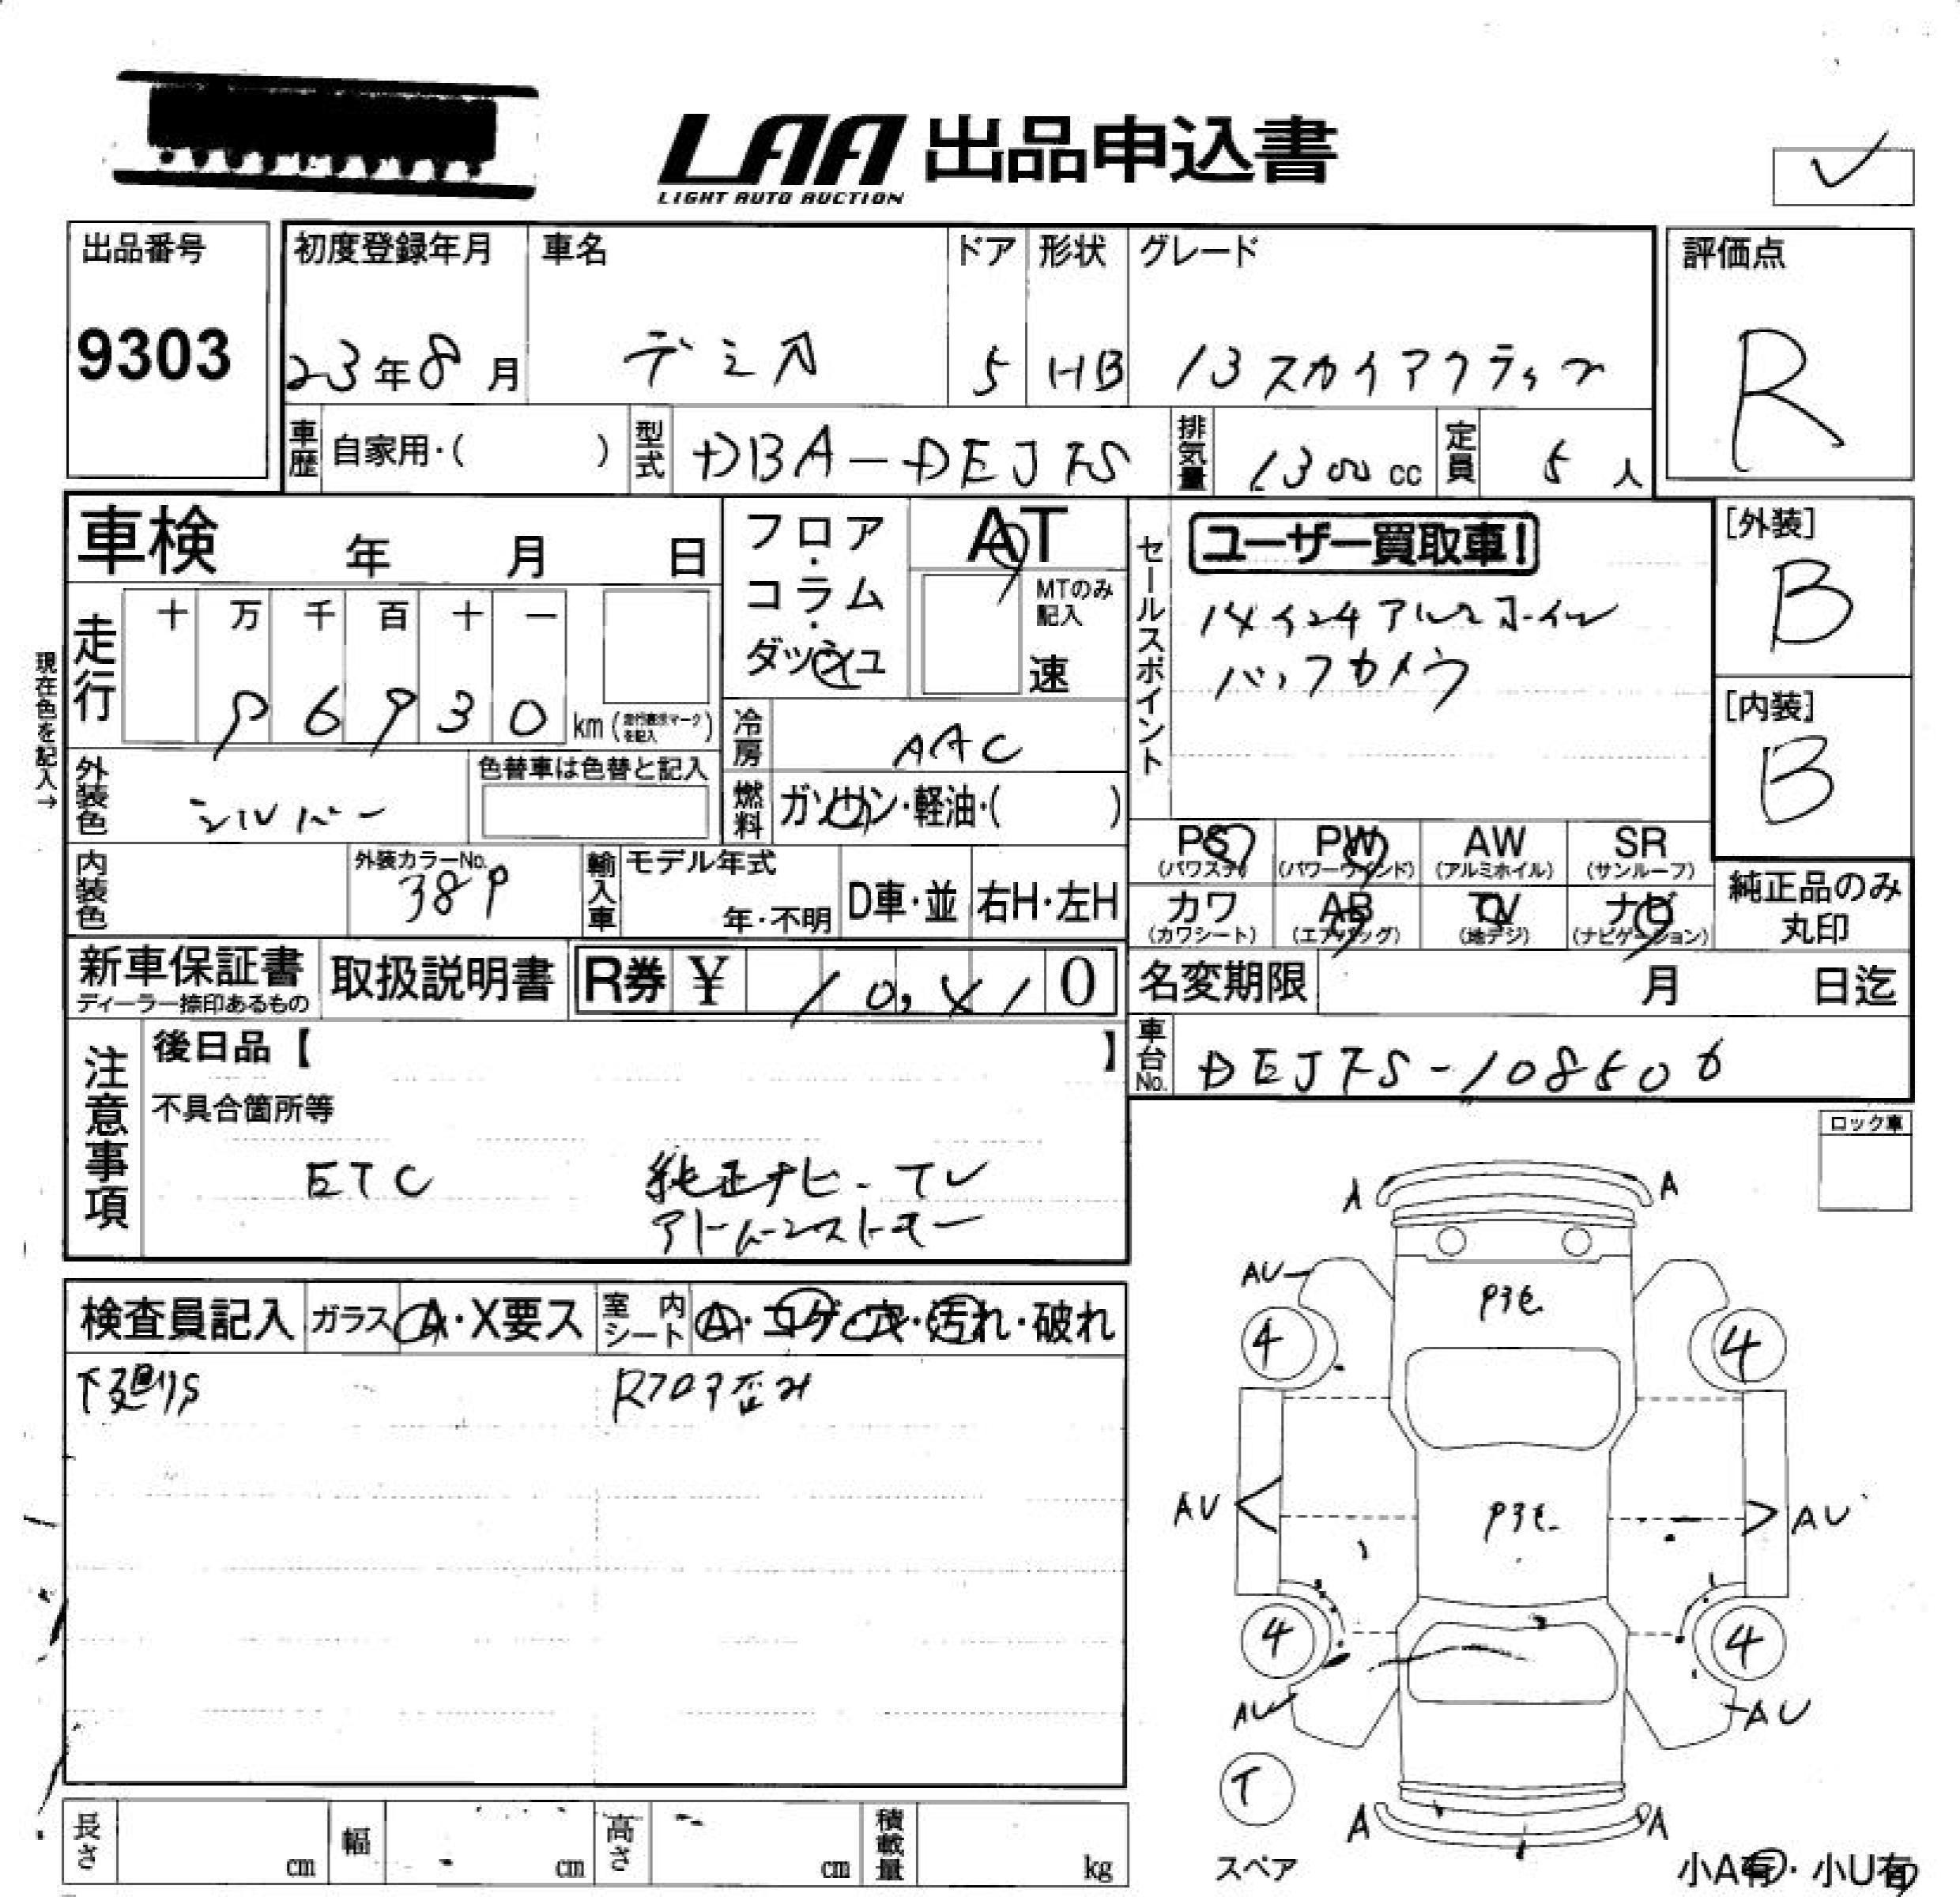 LAA 出品申込書
LIGHT AUTO AUCTION
出品番号
9303
初度登録年月
23年8月
車名
デミオ
ドア
5
形状
HB
グレード
13スカイアクティブ
評価点
R
車歴
自家用・( )
型式
DBA-DEJFS
排気量
1300cc
定員
5人
車検 年 月 日
フロア・コラム・ダッシュ
AT
MTのみ記入
速
セールスポイント
ユーザー買取車!
14インチアルミホイール
バックカメラ
[外装]
B
[内装]
B
現在色を記入→
走行
十 万 千 百 十 一
96930 km (走行表示マークを記入)
冷房
AAC
外装色
シルバー
色替車は色替と記入
燃料
ガソリン・軽油・( )
内装色
外装カラーNo.
38P
輸入車
モデル年式
年・不明
D車・並
右H・左H
PS
(パワステ)
PW
(パワーウィンド)
AW
(アルミホイル)
SR
(サンルーフ)
カワ
(カワシート)
AB
(エアバッグ)
TV
(地デジ)
ナビ
(ナビゲーション)
純正品のみ
丸印
新車保証書
ディーラー捺印あるもの
取扱説明書
R券 ¥ 0
名変期限 月 日迄
車台No.
DEJFS-108506
注意事項
後日品【 】
不具合箇所等
ETC
純正ナビ-TV
ロック車
検査員記入
ガラス
A・X要ス
室内シート
A・コゲ・穴・汚れ・破れ
下廻りS
Rフロア歪み
A A
AU
4 4
AU AU
4 4
AU AU
T
A A
スペア
長さ cm
幅 cm
高さ cm
積載量 kg
小A有・小U有